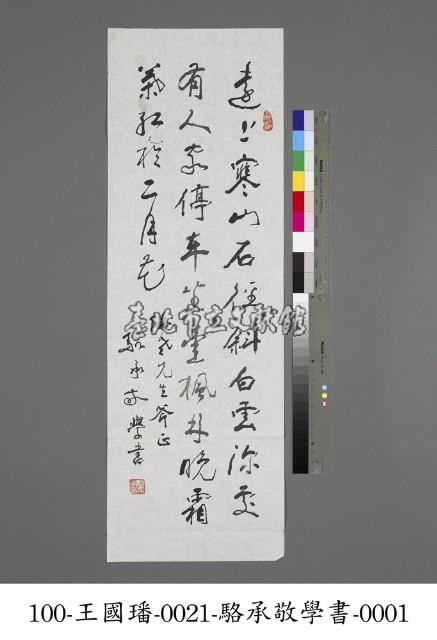 遠上寒山石徑斜白雲深處
有人家停車坐愛楓林晚霜
葉紅於二月花
先生斧正
駱承敬學書
臺北市立文獻館
100-王國璠-0021-駱承敬學書-0001